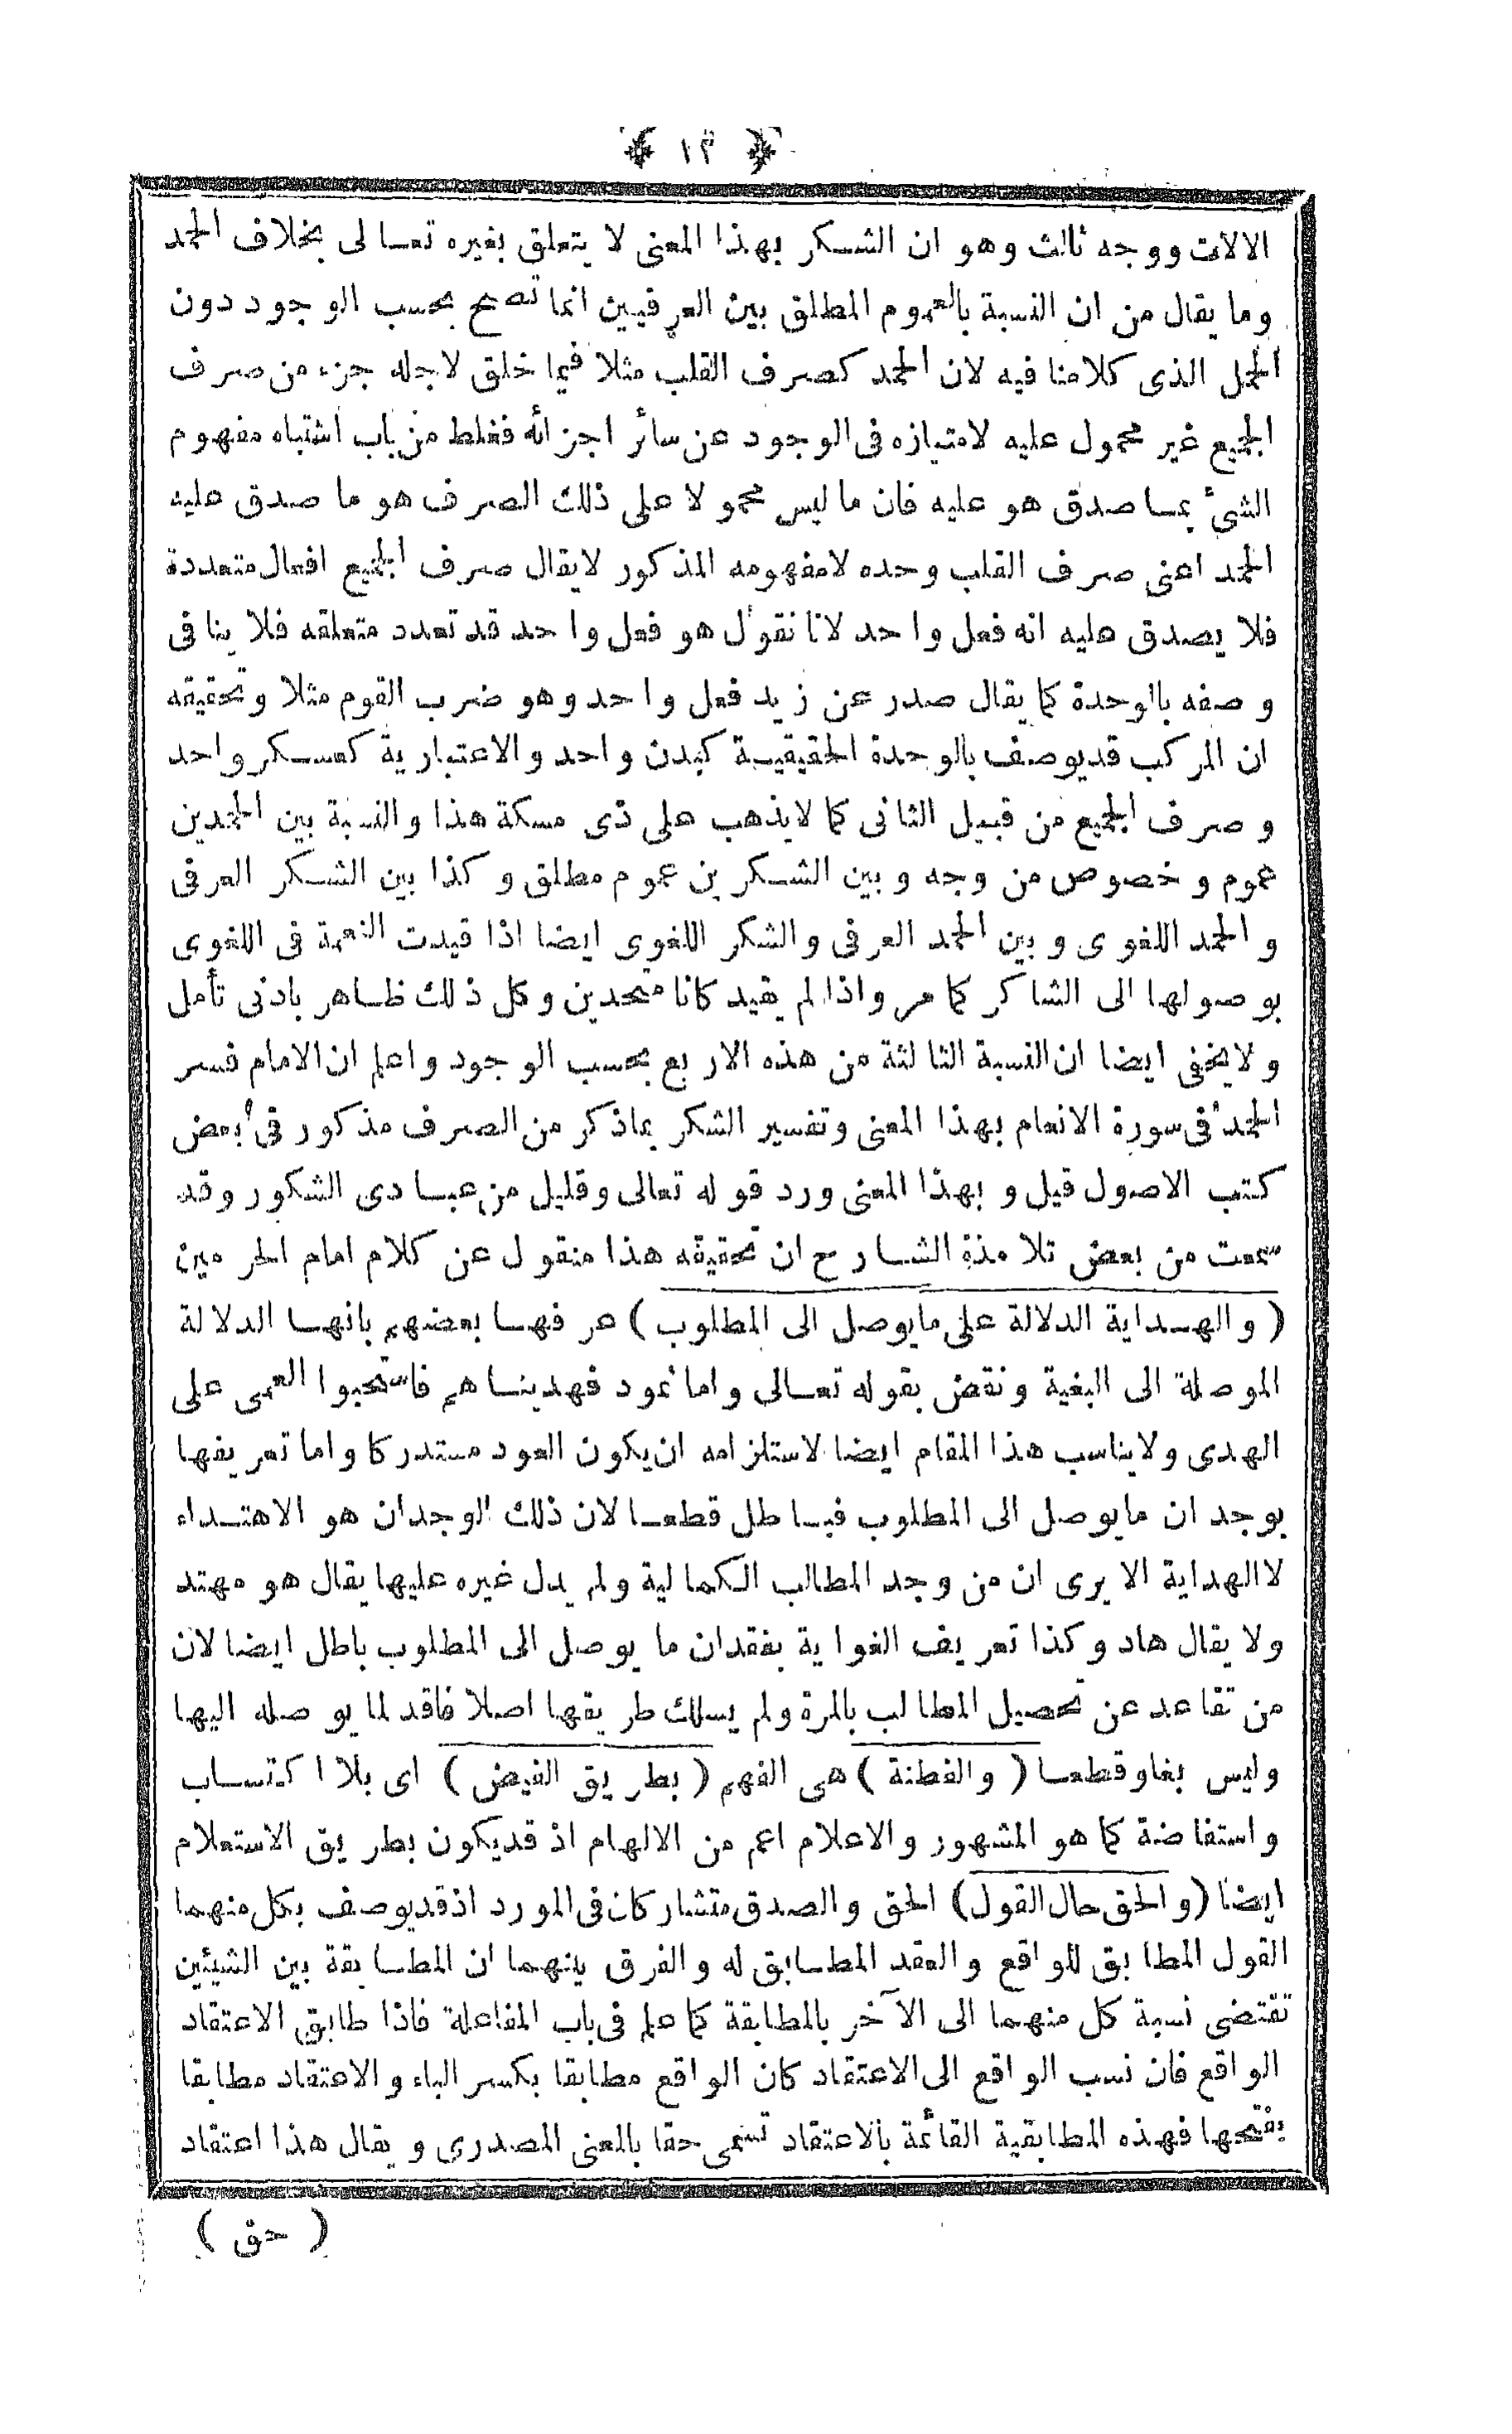 ﴿ ١٢ ﴾
الالات ووجه ثالث وهو ان الشكر بهذا المعنى لا يتعلق بغيره تعالى بخلاف الحمد
وما يقال من ان النسبة بالعموم المطلق بين العرفيين انما تصح بحسب الوجود دون
الحمل الذى كلامنا فيه لان الحمد كصرف القلب مثلا فيما خلق لاجله جزء من صرف
الجميع غير محمول عليه لامتيازه فى الوجود عن سائر اجزائه فغلط من باب اشتباه مفهوم
الشئ بما صدق هو عليه فان ما ليس محمولا على ذلك الصرف هو ما صدق عليه
الحمد اعنى صرف القلب وحده لا مفهومه المذكور لا يقال صرف الجميع افعال متعددة
فلا يصدق عليه انه فعل واحد لانا نقول هو فعل واحد قد تعدد متعلقه فلا ينافى
وصفه بالوحدة كما يقال صدر عن زيد فعل واحد وهو ضرب القوم مثلا وتحقيقه
ان المركب قد يوصف بالوحدة الحقيقية كبدن واحد والاعتبارية كعسكر واحد
وصرف الجميع من قبيل الثانى كما لا يذهب على ذى مسكة هذا والنسبة بين الحمدين
عموم وخصوص من وجه وبين الشكرين عموم مطلق وكذا بين الشكر العرفى
والحمد اللغوى وبين الحمد العرفى والشكر اللغوى ايضا اذا قيدت النعمة فى اللغوى
بوصولها الى الشاكر كما مر واذا لم يقيد كانا متحدين وكل ذلك ظاهر بادنى تأمل
ولا يخفى ايضا ان النسبة الثالثة من هذه الاربع بحسب الوجود واعلم ان الامام فسر
الحمد فى سورة الانعام بهذا المعنى وتفسير الشكر بما ذكر من الصرف مذكور فى بعض
كتب الاصول قيل وبهذا المعنى ورد قوله تعالى وقليل من عبادى الشكور وقد
سمعت من بعض تلامذة الشارح ان تحقيقه هذا منقول عن كلام امام الحرمين
(والهداية الدلالة على ما يوصل الى المطلوب) عرفها بعضهم بانها الدلالة
الموصلة الى البغية ونقض بقوله تعالى واما ثمود فهديناهم فاستحبوا العمى على
الهدى ولا يناسب هذا المقام ايضا لاستلزامه ان يكون العود مستدركا واما تعريفها
بوجدان ما يوصل الى المطلوب فباطل قطعا لان ذلك الوجدان هو الاهتداء
لا الهداية الا يرى ان من وجد المطالب الكمالية ولم يدل غيره عليها يقال هو مهتد
ولا يقال هاد وكذا تعريف الغواية بفقدان ما يوصل الى المطلوب باطل ايضا لان
من تقاعد عن تحصيل المطالب بالمرة ولم يسلك طريقها اصلا فاقد لما يوصله اليها
وليس بغاو قطعا (والفطنة) هى الفهم (بطريق الفيض) اى بلا اكتساب
واستفاضة كما هو المشهور والاعلام اعم من الالهام اذ قد يكون بطريق الاستعلام
ايضا (والحق حال القول) الحق والصدق متشاركان فى المورد اذ قد يوصف بكل منهما
القول المطابق للواقع والعقد المطابق له والفرق بينهما ان المطابقة بين الشيئين
تقتضى نسبة كل منهما الى الآخر بالمطابقة كما علم فى باب المفاعلة فاذا طابق الاعتقاد
الواقع فان نسب الواقع الى الاعتقاد كان الواقع مطابقا بكسر الباء والاعتقاد مطابقا
بفتحها فهذه المطابقية القائمة بالاعتقاد تسمى حقا بالمعنى المصدرى ويقال هذا اعتقاد
(حق)